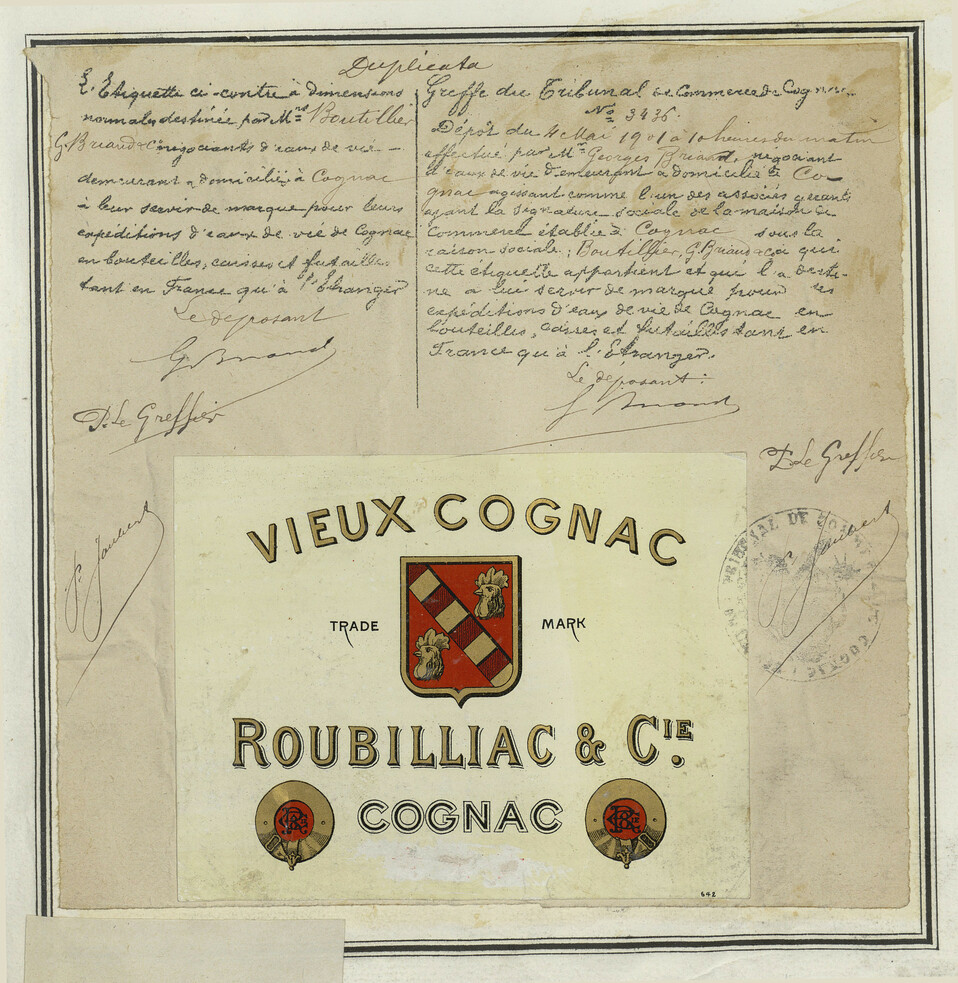 Duplicata
L'Etiquette ci-contre à dimensions
normales destinée par Mrs Boutillier
G. Briand & Cie négociants d'eaux de vie -
demeurant & domicilié à Cognac
à leur servir de marque pour leurs
expéditions d'eaux de vie de Cognac
en bouteilles, caisses et futailles
tant en France qu'à l'Etranger
Le déposant
G. Briand
P. Le Greffier
P. Joubert
Greffe du Tribunal de Commerce de Cognac
No 3436.
Dépôt du 4 Mai 1901 à 10 heures du matin
effectué par Mr Georges Briand, négociant
d'eaux de vie demeurant & domicilié à Co-
gnac agissant comme l'un des associés gérants
ayant la signature sociale de la maison de
Commerce établie à Cognac sous la
raison sociale; Boutillier, G. Briand & Cie à qui
cette étiquette appartient et qui l'a desti-
née à lui servir de marque pour ses
expéditions d'eaux de vie de Cognac en
bouteilles, caisses et futailles tant en
France qu'à l'Etranger.
Le déposant:
G. Briand
P. Le Greffier
P. Joubert
TRIBUNAL DE COMMERCE
COGNAC
VIEUX COGNAC
TRADE MARK
ROUBILLIAC & CIE.
COGNAC
642